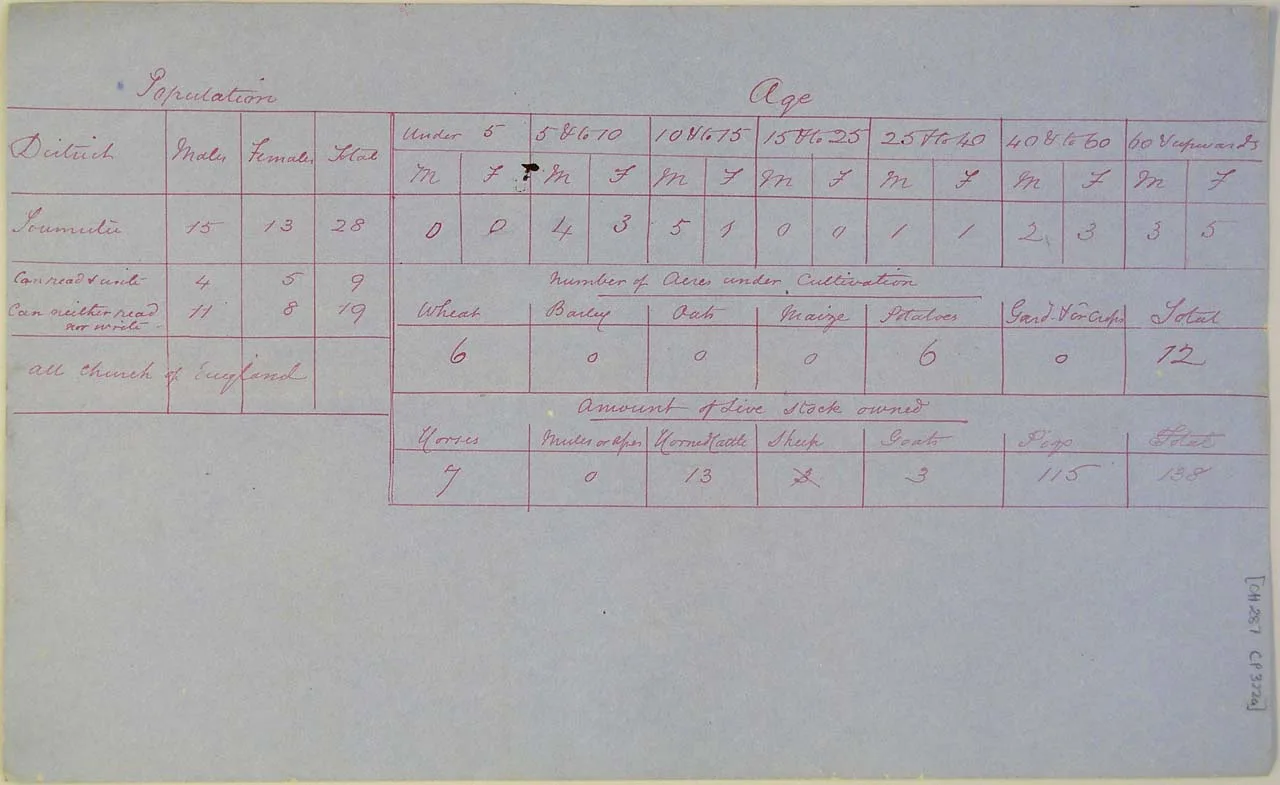 Population Age
District Males Females Total Under 5 5 & to 10 10 & to 15 15 & to 25 25 & to 40 40 & to 60 60 & upwards
M F M F M F M F M F M F M F
15 13 28 0 0 4 3 5 1 0 0 1 1 2 3 3 5
Can read & write 4 5 9
Can neither read nor write 11 8 19
all Church of England
Number of Acres under Cultivation
Wheat Barley Oats Maize Potatoes Gard. & or Crops Total
6 0 0 0 6 0 12
Amount of Live Stock owned
Horses Mules or Asses Horned Cattle Sheep Goats Pigs Total
7 0 13 3 115 138
[CH 287 CP 322a]